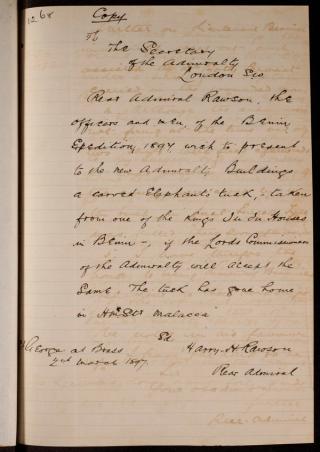 1268
Copy
To
The Secretary
of the Admiralty
London Sir
Rear Admiral Rawson, the
officers and men, of the Benin
Expedition 1897 wish to present
to the new Admiralty Buildings
a carved Elephant's tusk, - taken
from one of the Kings Ju Ju Houses
in Benin -, if the Lords Commissioners
of the Admiralty will accept the
same. The tusk has gone home
in HM Str Malacca
St George at Brass
2nd March 1897.
Sd Harry. H. Rawson
Rear Admiral
Rear Admiral